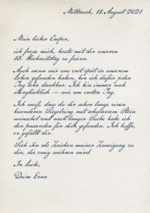 Mittwoch, 18 August 2021
Mein lieber Casper,
ich freue mich, heute mit dir unseren
16. Hochzeitstag zu feiern.
Auch wenn wir uns erst spät in unserem
Leben gefunden haben, bin ich dafür jeden
Tag sehr dankbar. Ich bin immer noch
wie am ersten Tag.
Ich weiß, dass du dir schon lange einen
besonderen mit schwarzem Stein
wünschst und nach langer Suche habe ich
den passenden für dich gefunden. Ich hoffe,
er gefällt dir.
Sieh ihn als Zeichen meiner Zuneigung zu
dir, die ewig währen wird.
In Liebe,
Deine Lena